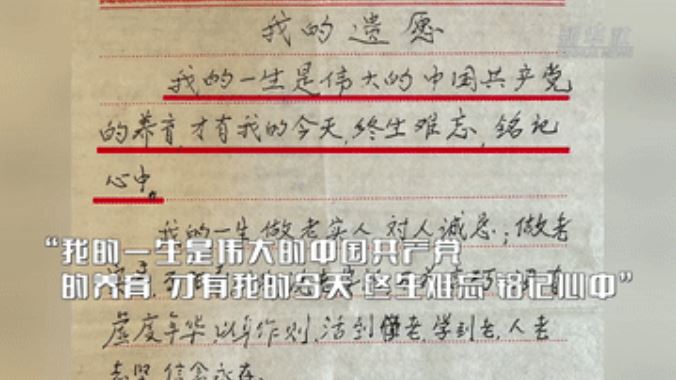 我的遗愿
我的一生是伟大的中国共产党
的养育,才有我的今天,终生难忘,铭记
心中。
我的一生做老实人 对人诚恳;做老
“我的一生是伟大的中国共产党
的养育 才有我的今天 终生难忘 铭记心中”
虚度年华,以身作则,活到老,学到老,人老
志坚 信念永存.